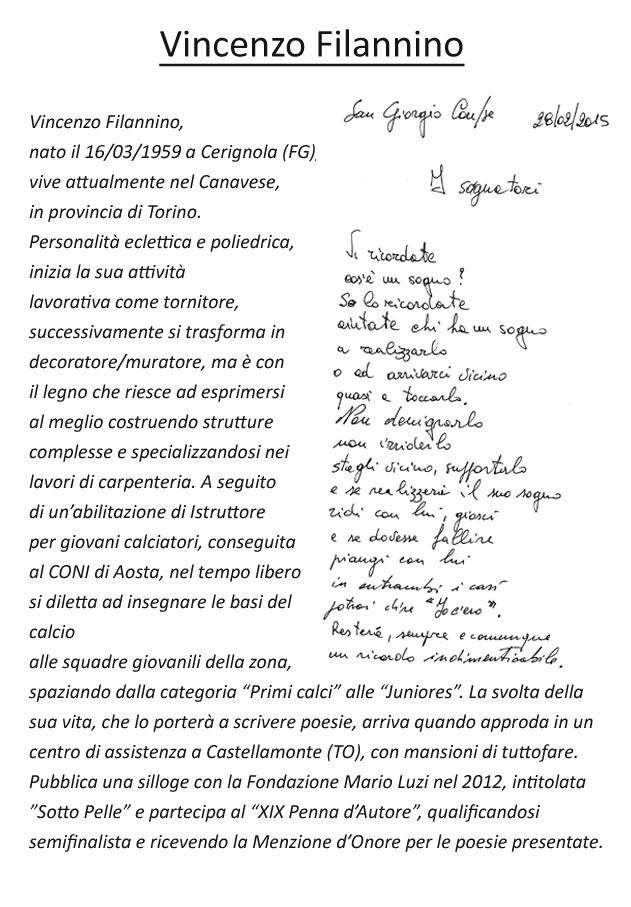 Vincenzo Filannino
Vincenzo Filannino,
nato il 16/03/1959 a Cerignola (FG)
vive attualmente nel Canavese,
in provincia di Torino.
Personalità eclettica e poliedrica,
inizia la sua attività
lavorativa come tornitore,
successivamente si trasforma in
decoratore/muratore, ma è con
il legno che riesce ad esprimersi
al meglio costruendo strutture
complesse e specializzandosi nei
lavori di carpenteria. A seguito
di un’abilitazione di Istruttore
per giovani calciatori, conseguita
al CONI di Aosta, nel tempo libero
si diletta ad insegnare le basi del
calcio
alle squadre giovanili della zona,
spaziando dalla categoria “Primi calci” alle “Juniores”. La svolta della
sua vita, che lo porterà a scrivere poesie, arriva quando approda in un
centro di assistenza a Castellamonte (TO), con mansioni di tuttofare.
Pubblica una silloge con la Fondazione Mario Luzi nel 2012, intitolata
”Sotto Pelle” e partecipa al “XIX Penna d’Autore”, qualificandosi
semifinalista e ricevendo la Menzione d’Onore per le poesie presentate.
San Giorgio Can/se 28/02/2015
I sognatori
Vi ricordate
cos'è un sogno?
Se lo ricordate
aiutate chi ha un sogno
a realizzarlo
o ad arrivarci vicino
quasi a toccarlo.
Non denigrarlo
non irriderlo
stagli vicino, supportalo
e se realizzerà il suo sogno
ridi con lui, gioisci
e se dovesse fallire
piangi con lui
in entrambi i casi
potrai dire "Io c'ero".
Resterà, sempre e comunque
un ricordo indimenticabile.